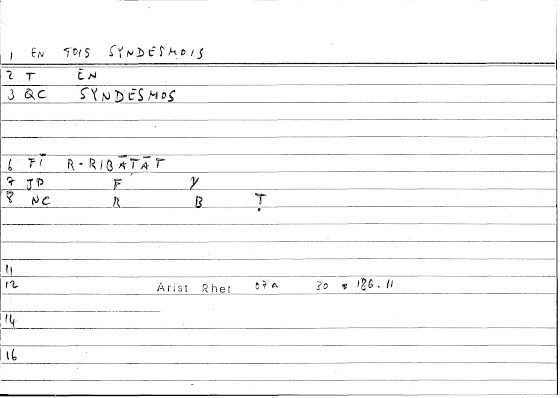 1 EN TOIS SYNDESMOIS
2 T EN
3 QC SYNDESMOS
6 FĪ R-RIBĀṬĀT
7 JP F Y
8 NC R B Ṭ
11
12 Arist Rhet 07a 30 * 186.11
14
16